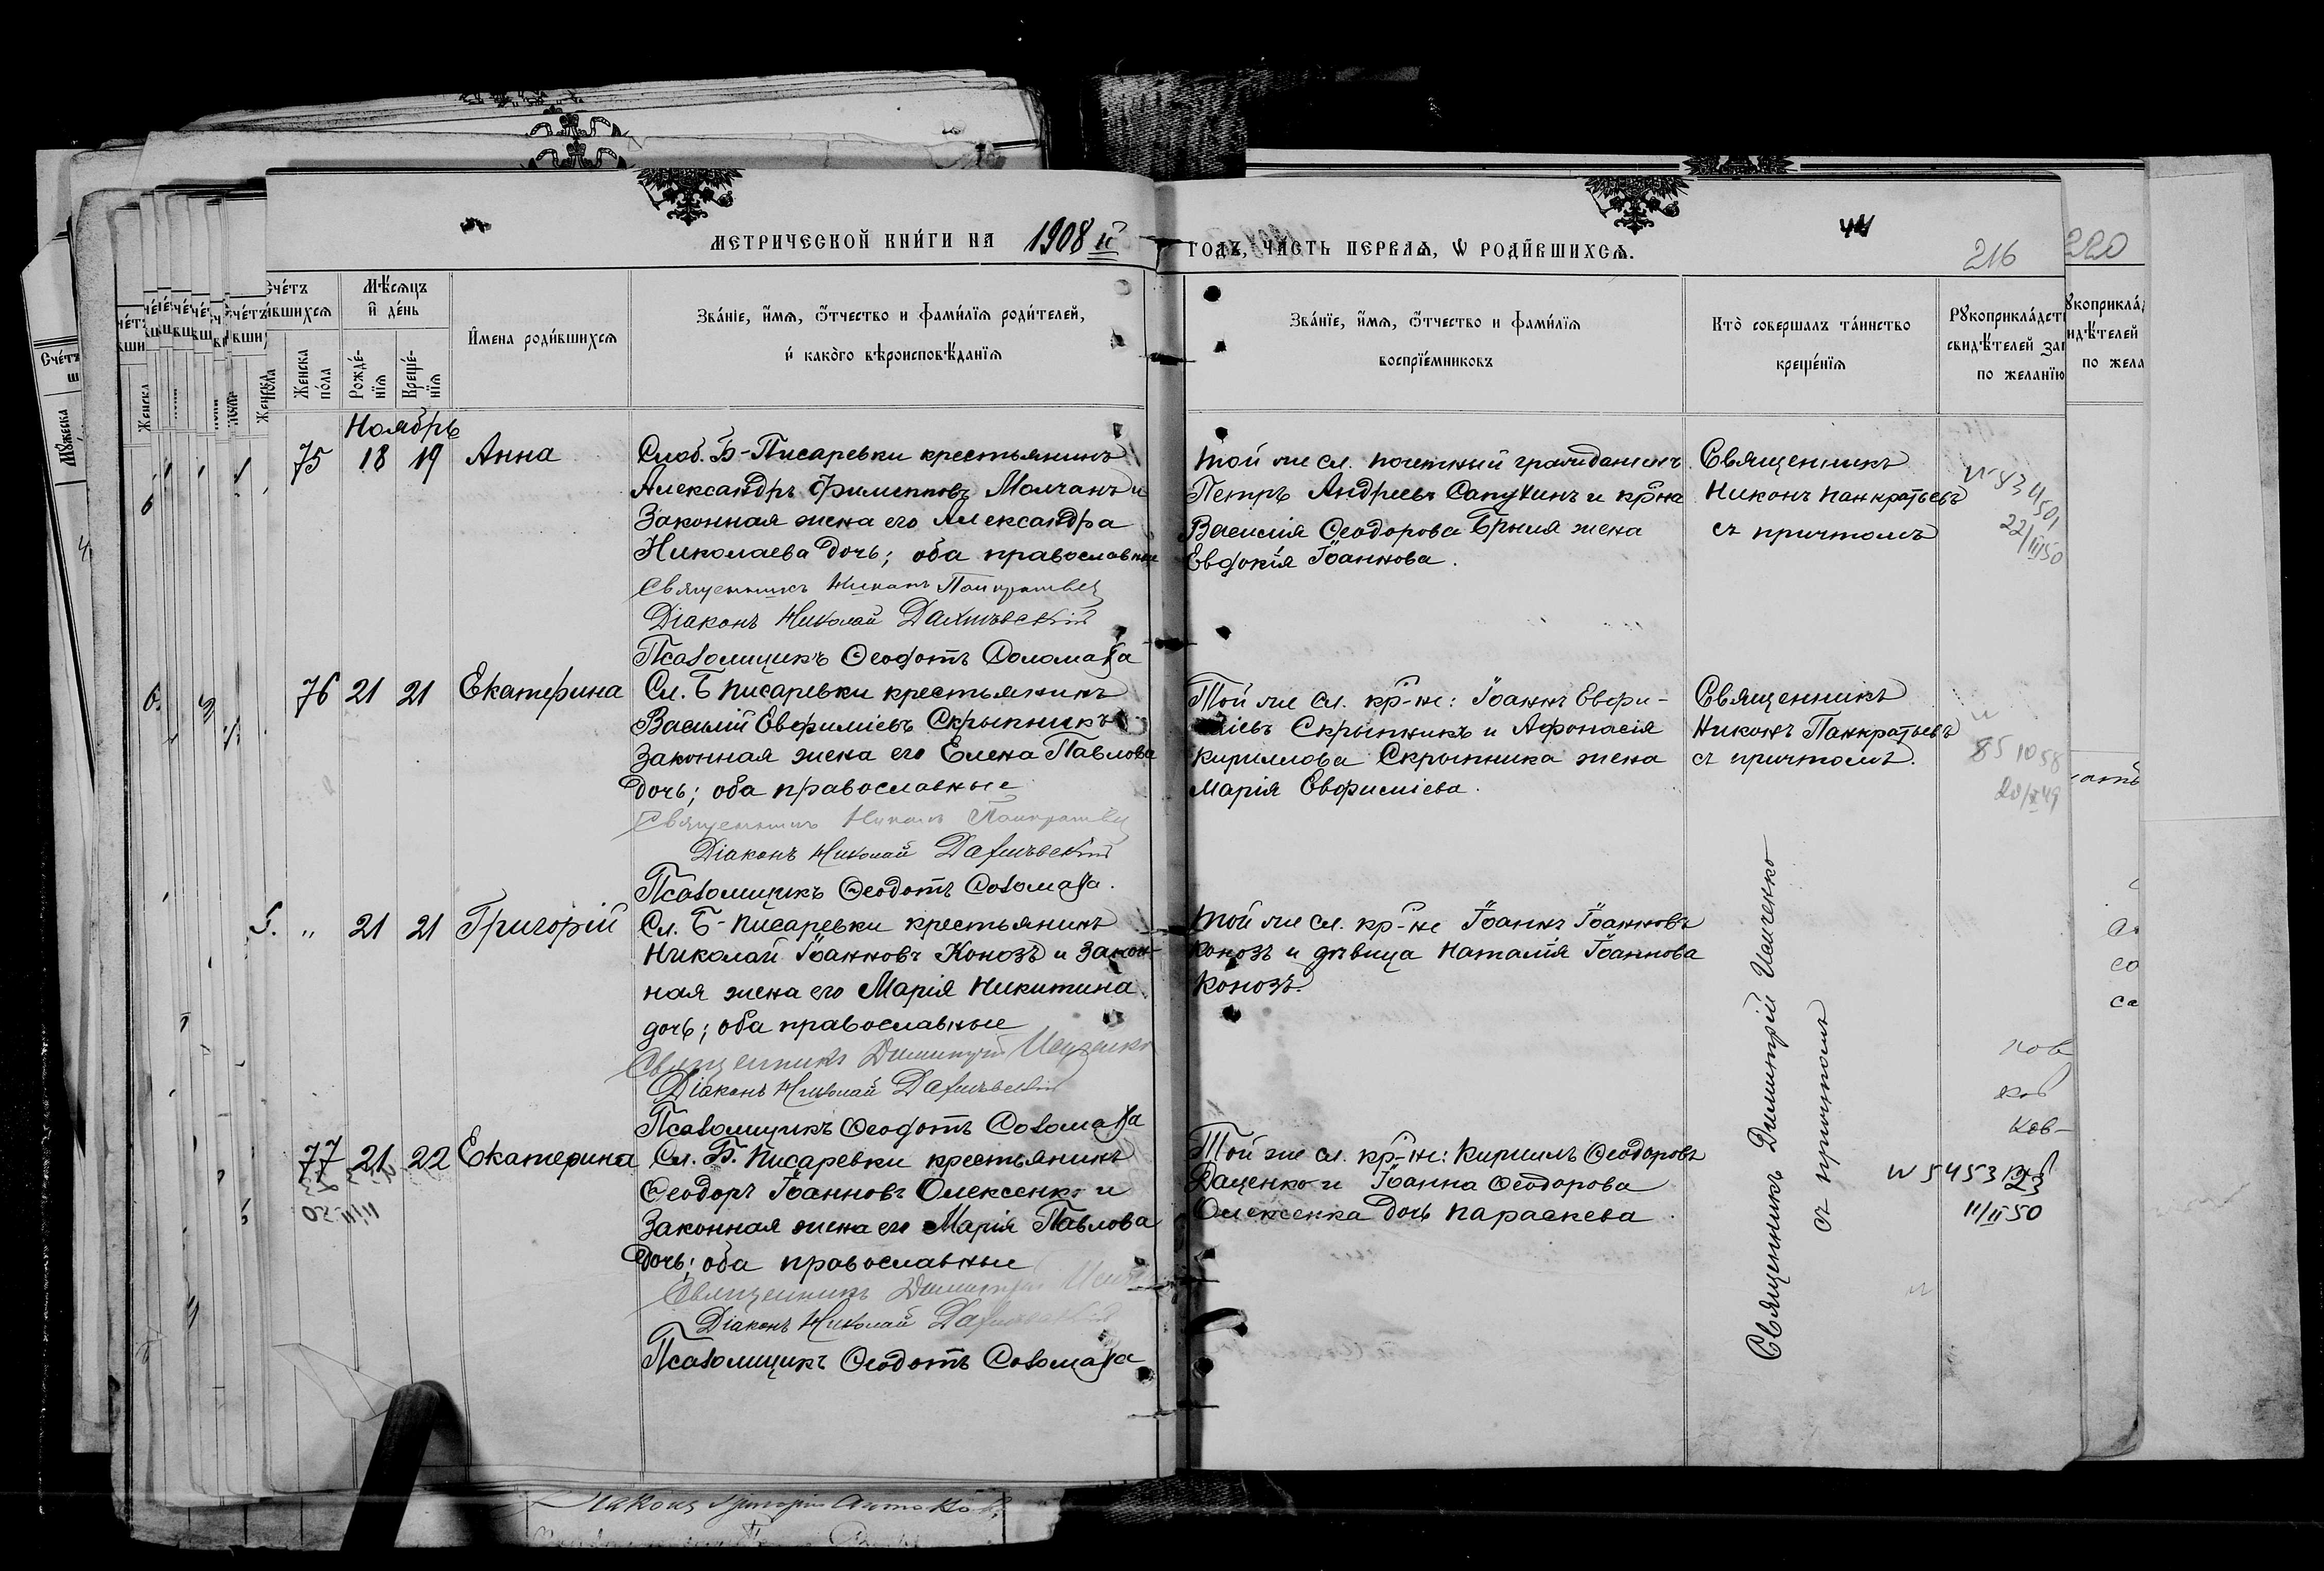 МЕТРИЧЕСКОЙ КНИ́ГИ НА 1908 й
ГОДЪ, ЧАСТЬ ПЕРВАѦ, Ѡ РОДИ́ВШИХСѦ.
216
220
Сче́тъ
Мѣ́сѧцъ
и҆ де́нь
Женска по́ла
Рожде́-нїѧ
Креще́-нїѧ
И҆мена роди́вшихсѧ
Зва́нїе, и҆́мѧ, ѻ҆́тчество и фами́лїѧ роди́телей,
и҆ како́го вѣроисповѣ́данїѧ
Зва́нїе, и҆́мѧ, ѻ҆́тчество и фами́лїѧ
воспрїе́мниковъ
Кто̀ совершалъ та́инство
креще́нїѧ
свидѣ́телей
по желанїю
Ноябрь
75 18 19 Анна
Слоб. Б-Писаревки крестьянинъ
Александръ Филипповъ Молчанъ и
Законная жена его Александра
Николаева дочь; оба православные
Священникъ Никонъ Панкратьевъ
Діаконъ Николай
Псаломщикъ Ѳеодотъ Соломаха
Той же сл. почетный гражданинъ
Петръ Андреевъ Сапухинъ и кр-на
Василія Ѳеодорова жена
Евдокія Іоаннова.
Священникъ
Никонъ Панкратьевъ
съ причтомъ
22/III 50
76 21 21 Екатерина
Сл. Б Писаревки крестьянинъ
Василій Евфиміевъ Скрыпникъ и
Законная жена его Елена Павлова
дочь; оба православные
Священникъ Никонъ Панкратьевъ
Діаконъ Николай
Псаломщикъ Ѳеодотъ Соломаха.
Той же сл. кр-не: Іоаннъ Евфи-
міевъ Скрыпникъ и Афонасія
Кириллова Скрыпника жена
Марія Евфиміева.
Священникъ
Никонъ Панкратьевъ
съ причтомъ.
5. „ 21 21 Григорій
Сл. Б-Писаревки крестьянинъ
Николай Іоанновъ Конозъ и закон-
ная жена его Марія Никитина
дочь; оба православные
Священникъ Димитрій Исиченко
Діаконъ Николай
Псаломщикъ Ѳеодотъ Соломаха
Той же сл. кр-не Іоаннъ Іоанновъ
Конозъ и дѣвица Наталія Іоаннова
Конозъ.
Священникъ Димитрій Исиченко
съ причтомъ
77 21 22 Екатерина
Сл. Б. Писаревки крестьянинъ
Ѳеодоръ Іоанновъ Олексенко и
Законная жена его Марія Павлова
дочь; оба православные
Священникъ Димитрій
Діаконъ Николай
Псаломщикъ Ѳеодотъ Соломаха
Той же сл. кр-не: Кириллъ Ѳеодоровъ
Даценко и Іоанна Ѳеодорова
Олексенка дочь Параскева
11/II 50